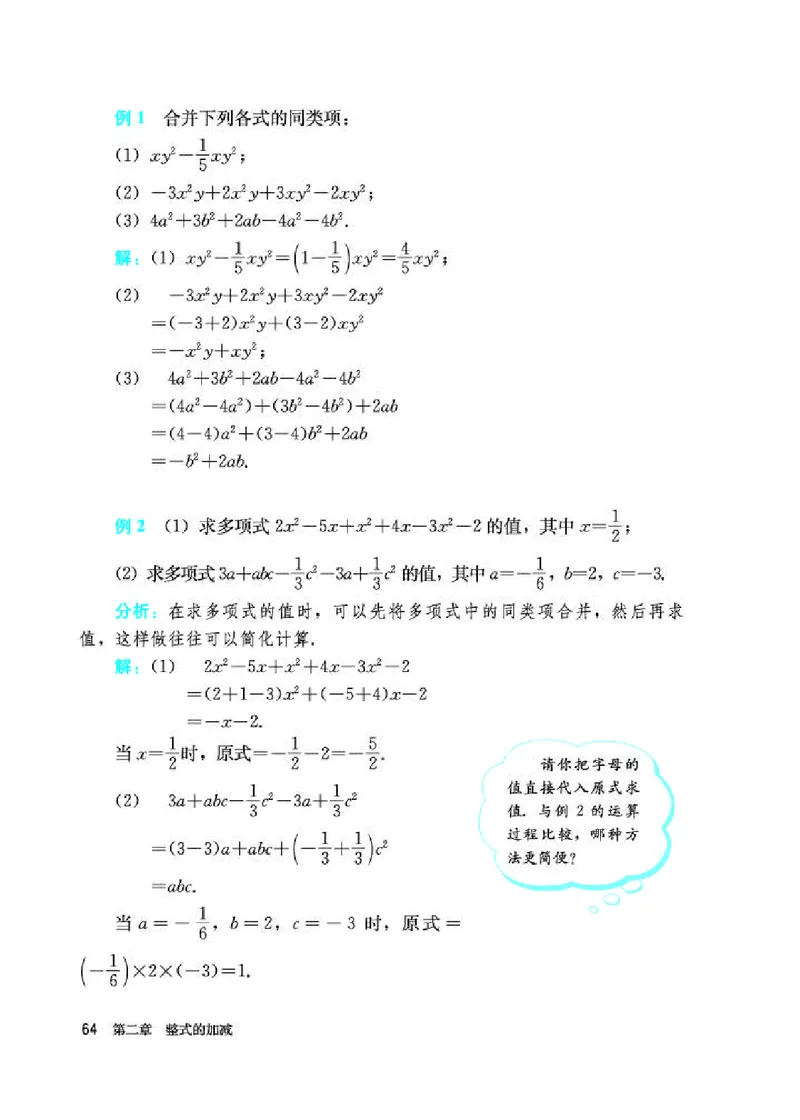 例1 合并下列各式的同类项：
(1) xy²－1/5xy²；
(2) －3x²y＋2x²y＋3xy²－2xy²；
(3) 4a²＋3b²＋2ab－4a²－4b².
解：(1) xy²－1/5xy²＝(1－1/5)xy²＝4/5xy²；
(2) －3x²y＋2x²y＋3xy²－2xy²
＝(－3＋2)x²y＋(3－2)xy²
＝－x²y＋xy²；
(3) 4a²＋3b²＋2ab－4a²－4b²
＝(4a²－4a²)＋(3b²－4b²)＋2ab
＝(4－4)a²＋(3－4)b²＋2ab
＝－b²＋2ab.
例2 (1) 求多项式 2x²－5x＋x²＋4x－3x²－2 的值，其中 x＝1/2；
(2) 求多项式 3a＋abc－1/3c²－3a＋1/3c² 的值，其中 a＝－1/6，b＝2，c＝－3.
分析：在求多项式的值时，可以先将多项式中的同类项合并，然后再求
值，这样做往往可以简化计算.
解：(1) 2x²－5x＋x²＋4x－3x²－2
＝(2＋1－3)x²＋(－5＋4)x－2
＝－x－2.
当 x＝1/2时，原式＝－1/2－2＝－5/2.
(2) 3a＋abc－1/3c²－3a＋1/3c²
＝(3－3)a＋abc＋(－1/3＋1/3)c²
＝abc.
当 a＝－1/6，b＝2，c＝－3 时，原式＝
(－1/6)×2×(－3)＝1.
请你把字母的
值直接代入原式求
值. 与例 2 的运算
过程比较，哪种方
法更简便？
64 第二章 整式的加减